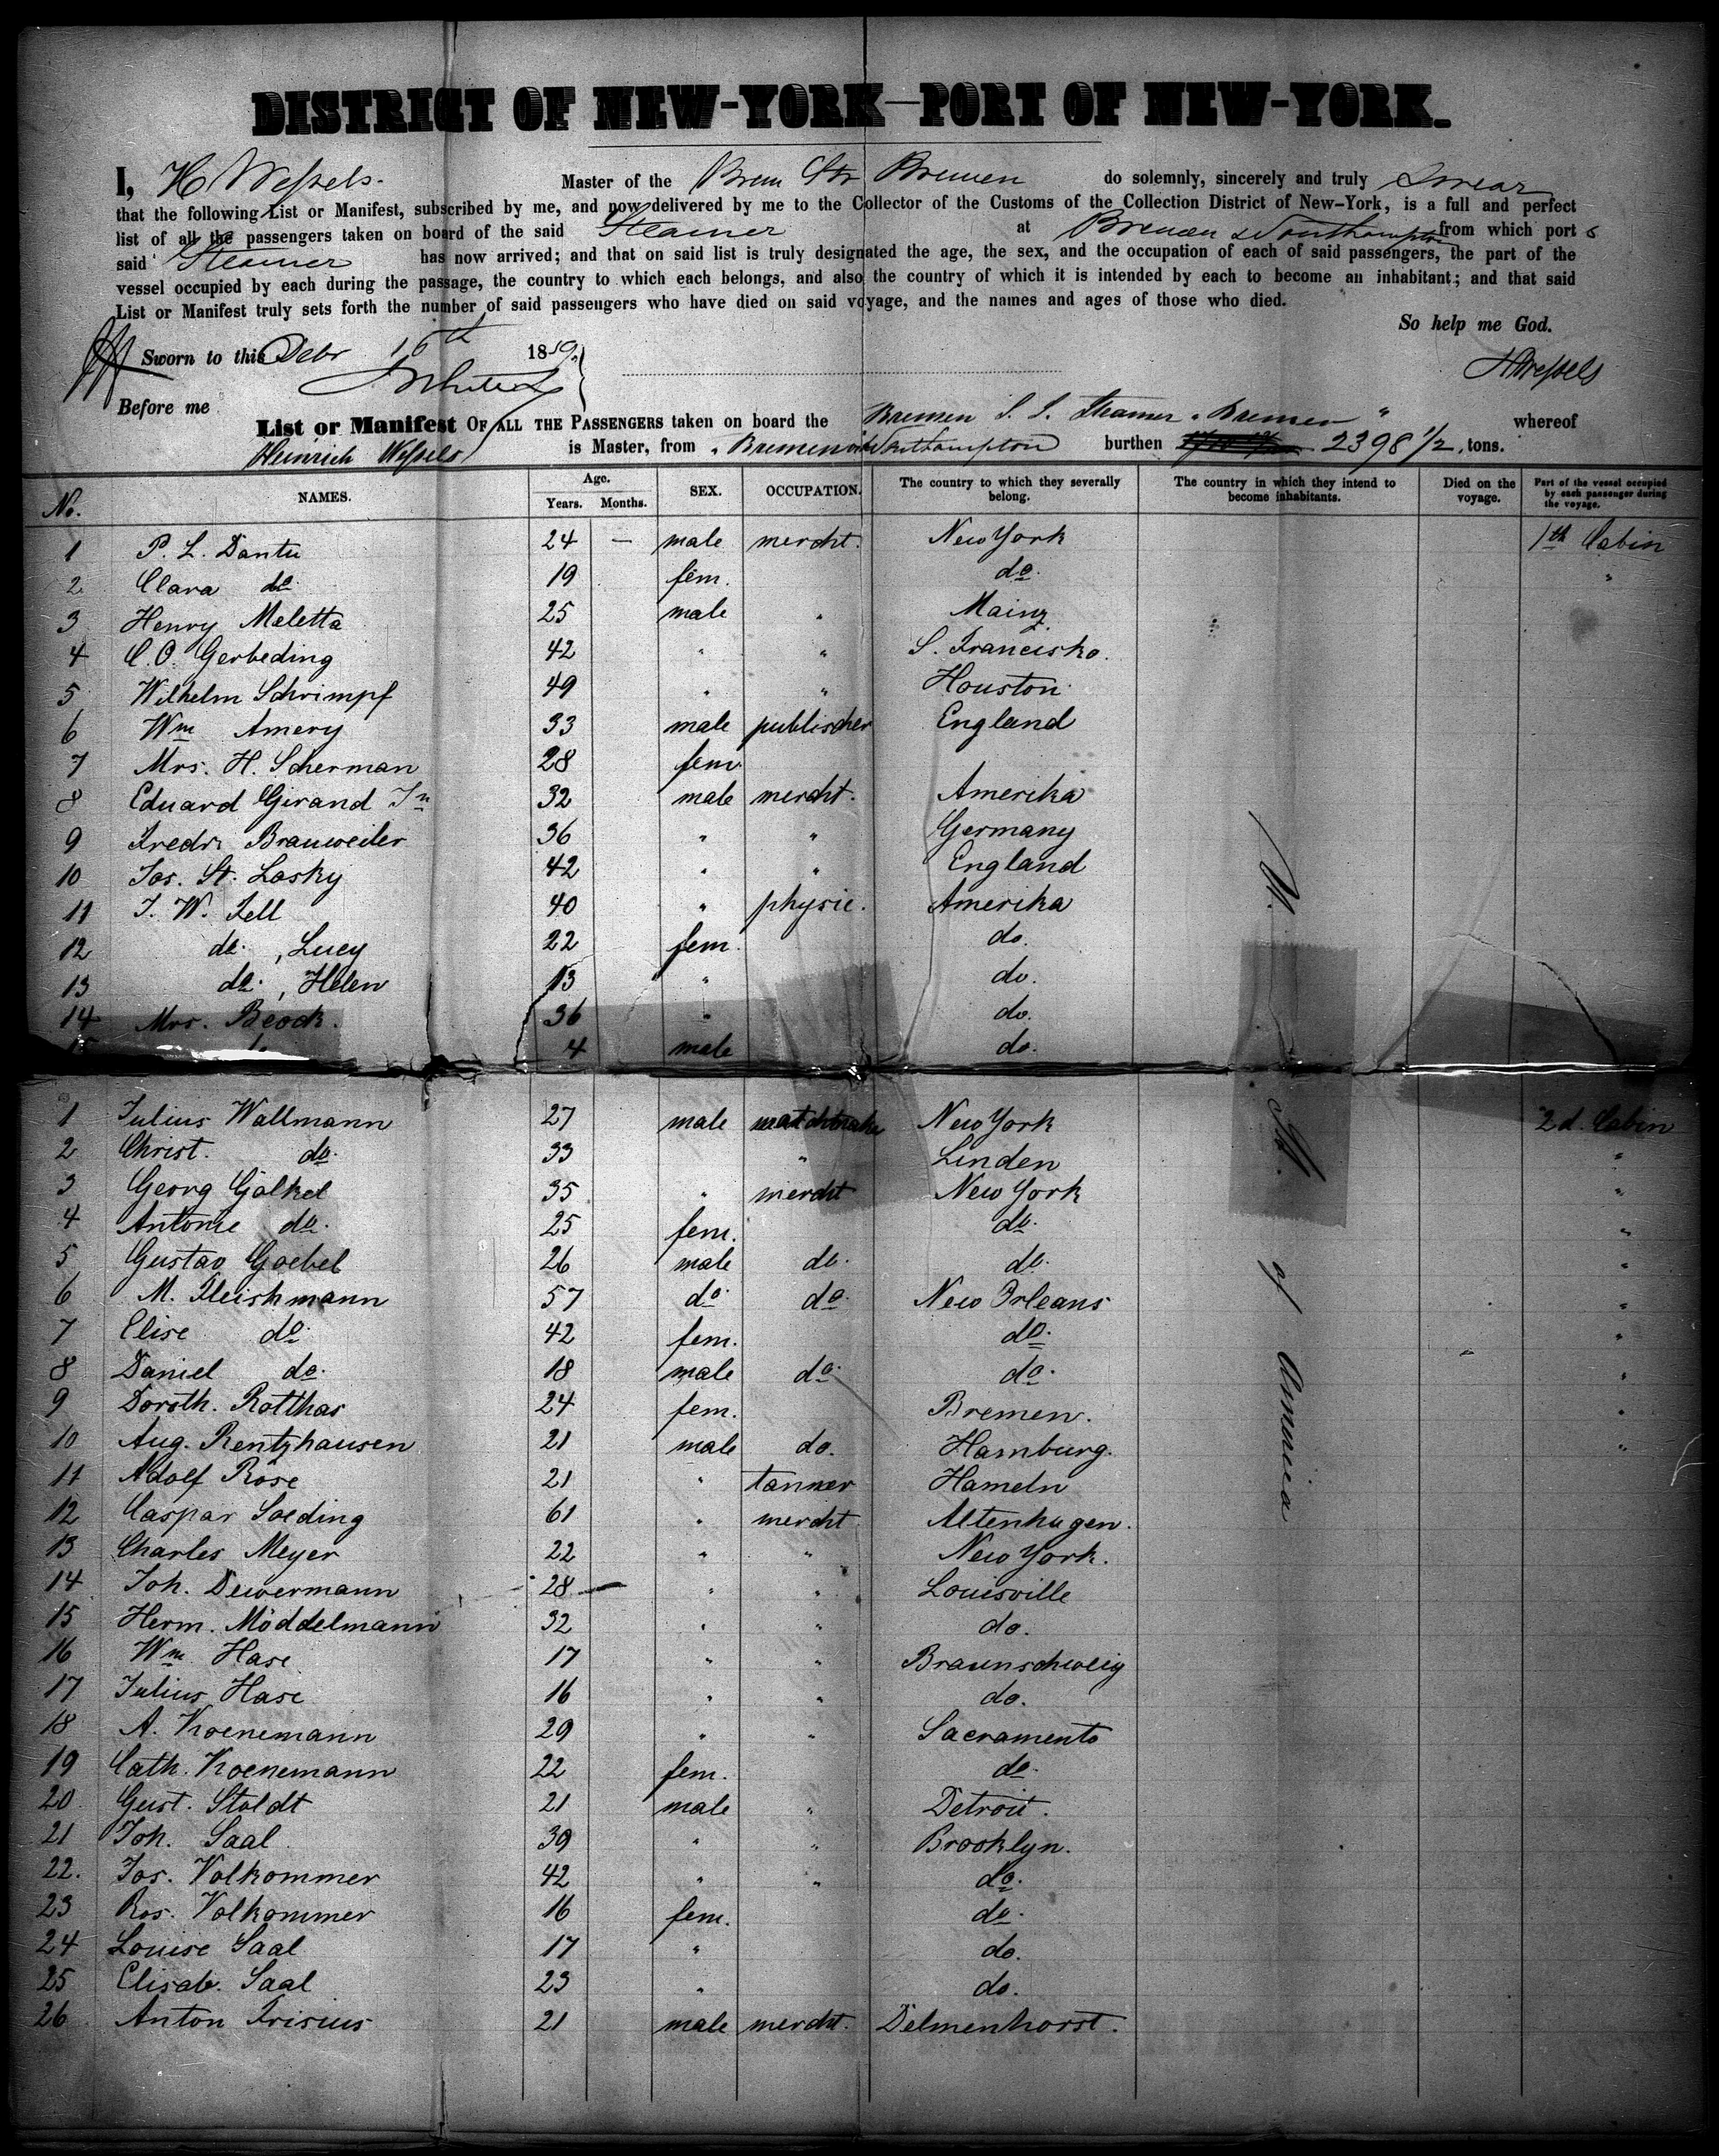 DISTRICT OF NEW-YORK—PORT OF NEW-YORK.
I, H Wessels. Master of the Brem Str Bremen do solemnly, sincerely and truly swear
that the following List or Manifest, subscribed by me, and now delivered by me to the Collector of the Customs of the Collection District of New-York, is a full and perfect
list of all the passengers taken on board of the said Steamer at Bremen & Southampton from which port s
said Steamer has now arrived; and that on said list is truly designated the age, the sex, and the occupation of each of said passengers, the part of the
vessel occupied by each during the passage, the country to which each belongs, and also the country of which it is intended by each to become an inhabitant; and that said
List or Manifest truly sets forth the number of said passengers who have died on said voyage, and the names and ages of those who died.
So help me God.
Sworn to this Debr 16th 1859.
HWessels
Before me
List or Manifest OF ALL THE PASSENGERS taken on board the Bremen S. S. Steamer "Bremen" whereof
Heinrich Wessels is Master, from "Bremen Southampton burthen 2398 1/2 tons.
No. NAMES. Age. Years. Months. SEX. OCCUPATION. The country to which they severally belong. The country in which they intend to become inhabitants. Died on the voyage. Part of the vessel occupied by each passenger during the voyage.
1 P. L. Dantu 24 — male mercht. New York 1th Cabin
2 Clara do. 19 fem. do. "
3 Henry Meletta 25 male " Mainz
4 C. O. Gerbeding 42 " " S. Francisko.
5 Wilhelm Schrimpf 49 " " Houston
6 Wm Amery 33 male publischer England
7 Mrs. H. Scherman 28 fem.
8 Eduard Girand Jn 32 male mercht. Amerika
9 Fredr. Brauweiler 36 " " Germany
10 Jos. St. Losky 42 " " England
11 T. W. Fell 40 " physic. Amerika
12 do. , Lucy 22 fem. do.
13 do. , Helen 13 " do.
14 Mrs. Beock. 36 " do.
15 do 4 male do.
1 Julius Wallmann 27 male New York 2d. Cabin
2 Christ. do. 33 " Linden "
3 Georg Gölkel 35 " mercht New York "
4 Antonie do. 25 fem. do. "
5 Gustav Goebel 26 male do. do. "
6 M. Fleishmann 57 do. do. New Orleans "
7 Elise do. 42 fem. do. "
8 Daniel do. 18 male do. do. "
9 Doroth. Rotthas 24 fem. Bremen. "
10 Aug. Rentzhausen 21 male do. Hamburg. "
11 Adolf Röse 21 " tanner Hameln
12 Caspar Soeding 61 " mercht Altenhagen.
13 Charles Meyer 22 " " New York.
14 Joh. Dewermann 28 — " " Louisville
15 Herm. Möddelmann 32 " " do.
16 Wm Hase 17 " " Braunschweig
17 Julius Hase 16 " " do.
18 A. Koenemann 29 " " Sacramento
19 Cath. Koenemann 22 fem. do.
20 Gust. Stoldt 21 male " Detroit.
21 Joh. Saal 39 " " Brooklyn.
22. Jos. Volkommer 42 " " do.
23 Ros. Volkommer 16 fem. do.
24 Louise Saal 17 " do.
25 Elisab. Saal 23 " do.
26 Anton Frisius 21 male mercht. Delmenhorst.
U. St. of America